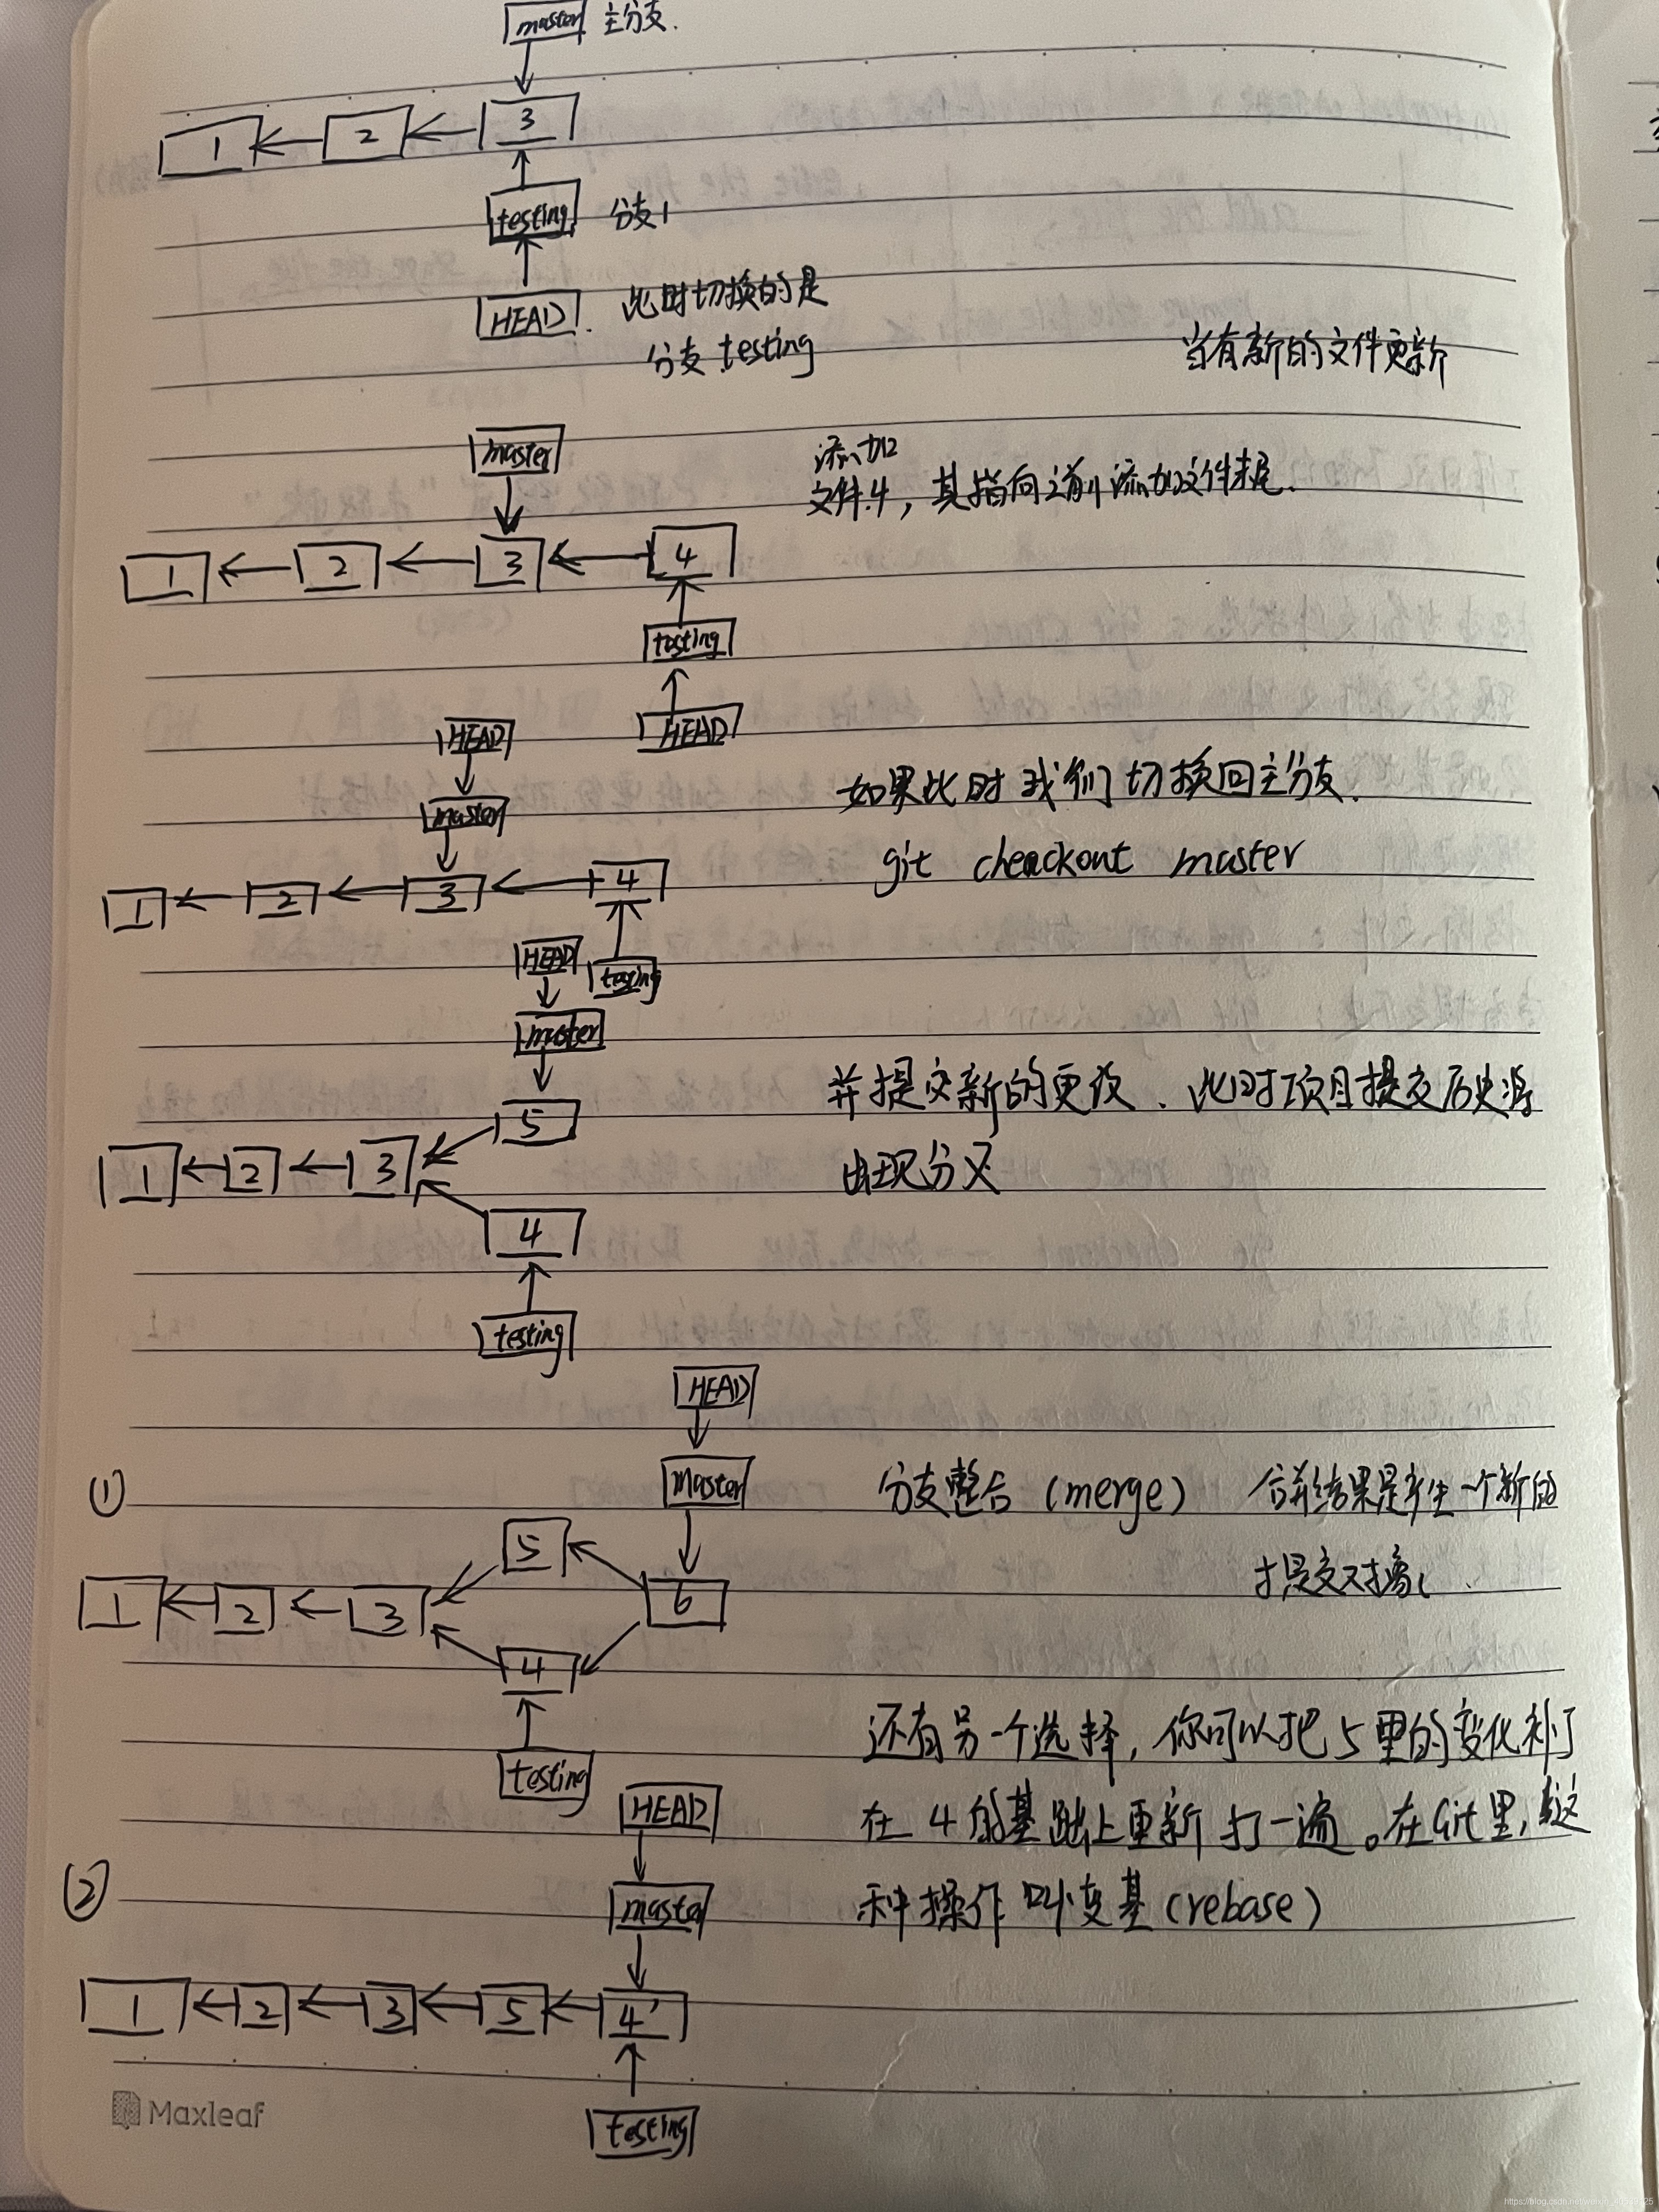 master 主分支.
1 2 3
testing 分支1
HEAD. 此时切换的是
分支 testing
当有新的文件更新
master
添加
文件4，其指向之前添加文件末尾.
1 2 3 4
testing
HEAD
HEAD
如果此时我们切换回主分支.
master
git cheackout master
1 2 3 4
HEAD testing
master
并提交新的更改、此时项目提交历史
5
1 2 3
出现分叉
4
testing
HEAD
①
master
分支整合（merge） 合并结果是产生一个新的
5
提交对象
1 2 3 6
4
还有另一个选择，你可以把5里的变化补丁
testing
HEAD
在4的基础上重新打一遍。在Git里，这
②
master
种操作叫变基（rebase）
1 2 3 5 4'
testing
Maxleaf